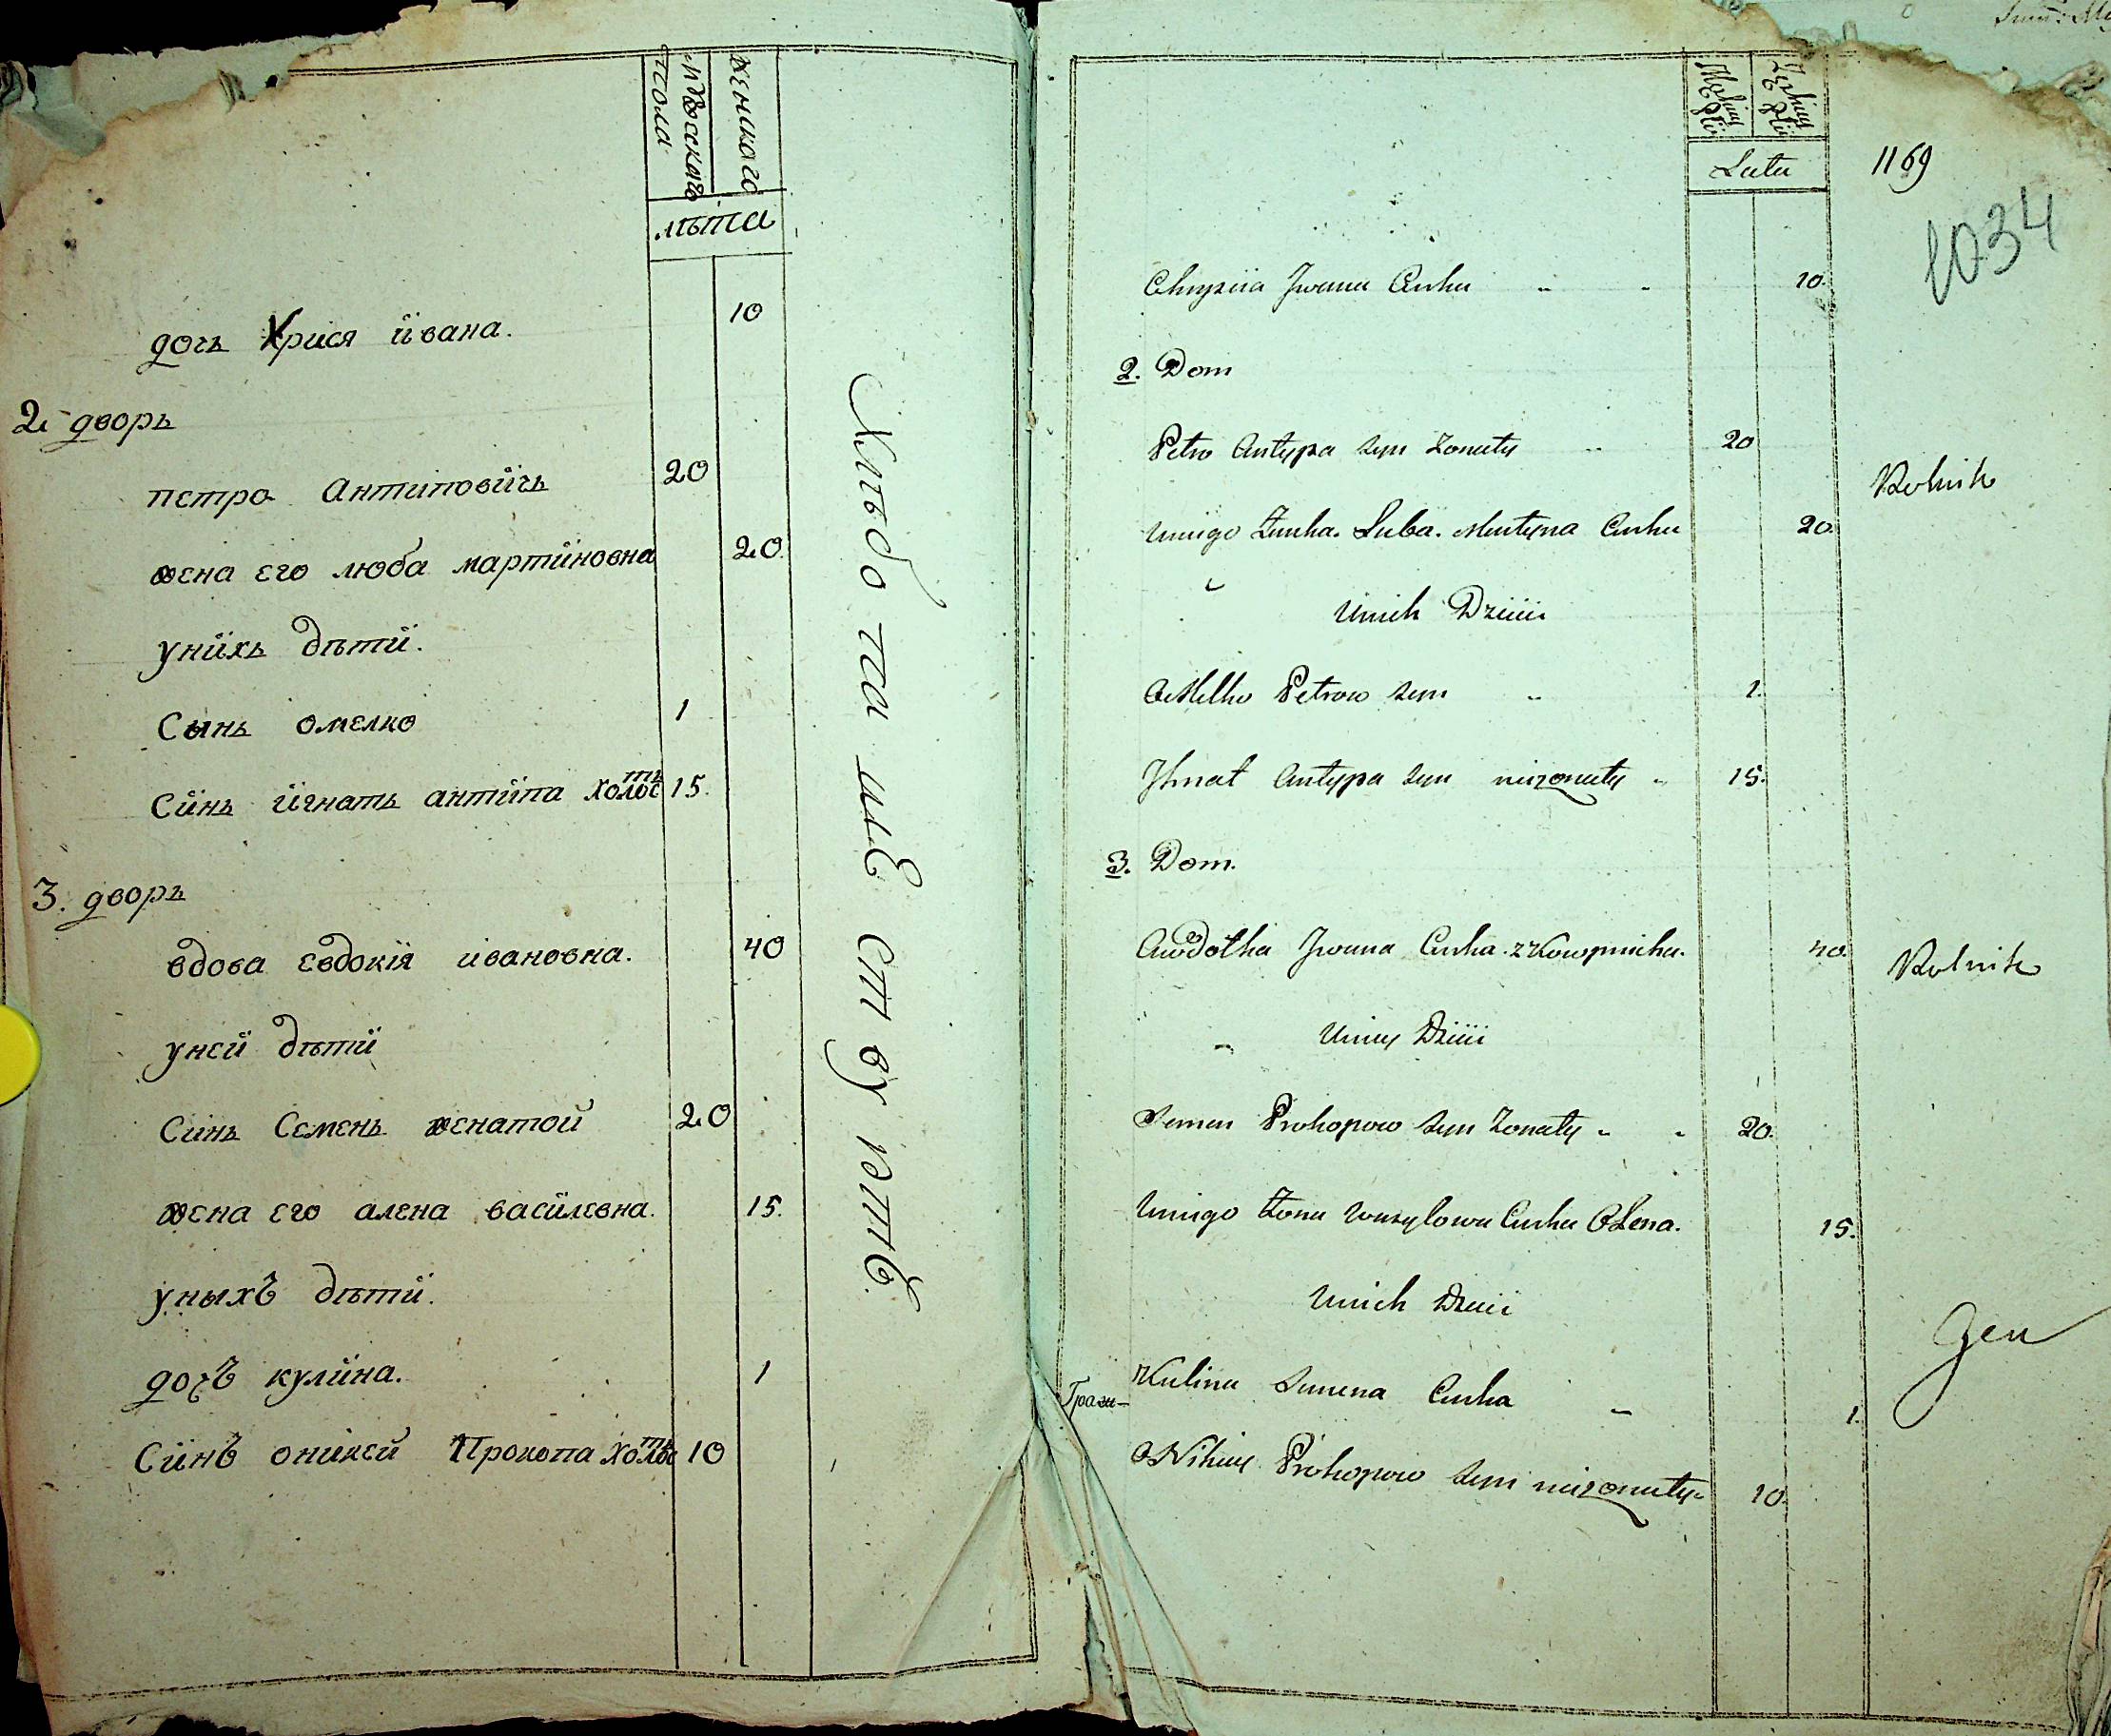 мужескаго пола
женскаго
лѣта
дочь Хрися ӥвана. 10
2 дворь
петро Антиповӥчь 20
жена его люба мартӥновна 20.
унӥхь дѣтӥ.
Сынь омелко 1
Сӥнь ӥгнать антӥпа холостъ 15.
3. дворь
вдова евдокія ивановна. 40
уней дѣтӥ
Синь Семень женатой 20
жена его алена васӥлевна. 15.
уныхъ дѣтӥ.
дочъ кулӥна. 1
Сӥнъ оникей Прокопа холостъ 10
Хлѣбопашествуютъ.
Męskiey Płci
Żeńskiey Płci
Lata
1169
1034
Chrysiia Jwana Curka 10.
2. Dom
Petro Antypa syn Zonaty 20
Rolnik
Uniego Zonka. Luba. Martyna Curka 20.
Unich Dzieii
Omelko Petrow syn 1.
Jhnat Antypa syn niezonaty 15.
3. Dom.
Awdotka Jwana Curka. 40.
Rolnik
Uniey Dzieii
Semen Prokopow syn Zonaty 20.
Uniego Zona Wasylowa Curka Olena. 15.
Unich Dzieii
Kulina Semena Curka 1.
ONikiey Prokopow syn niezonaty 10.